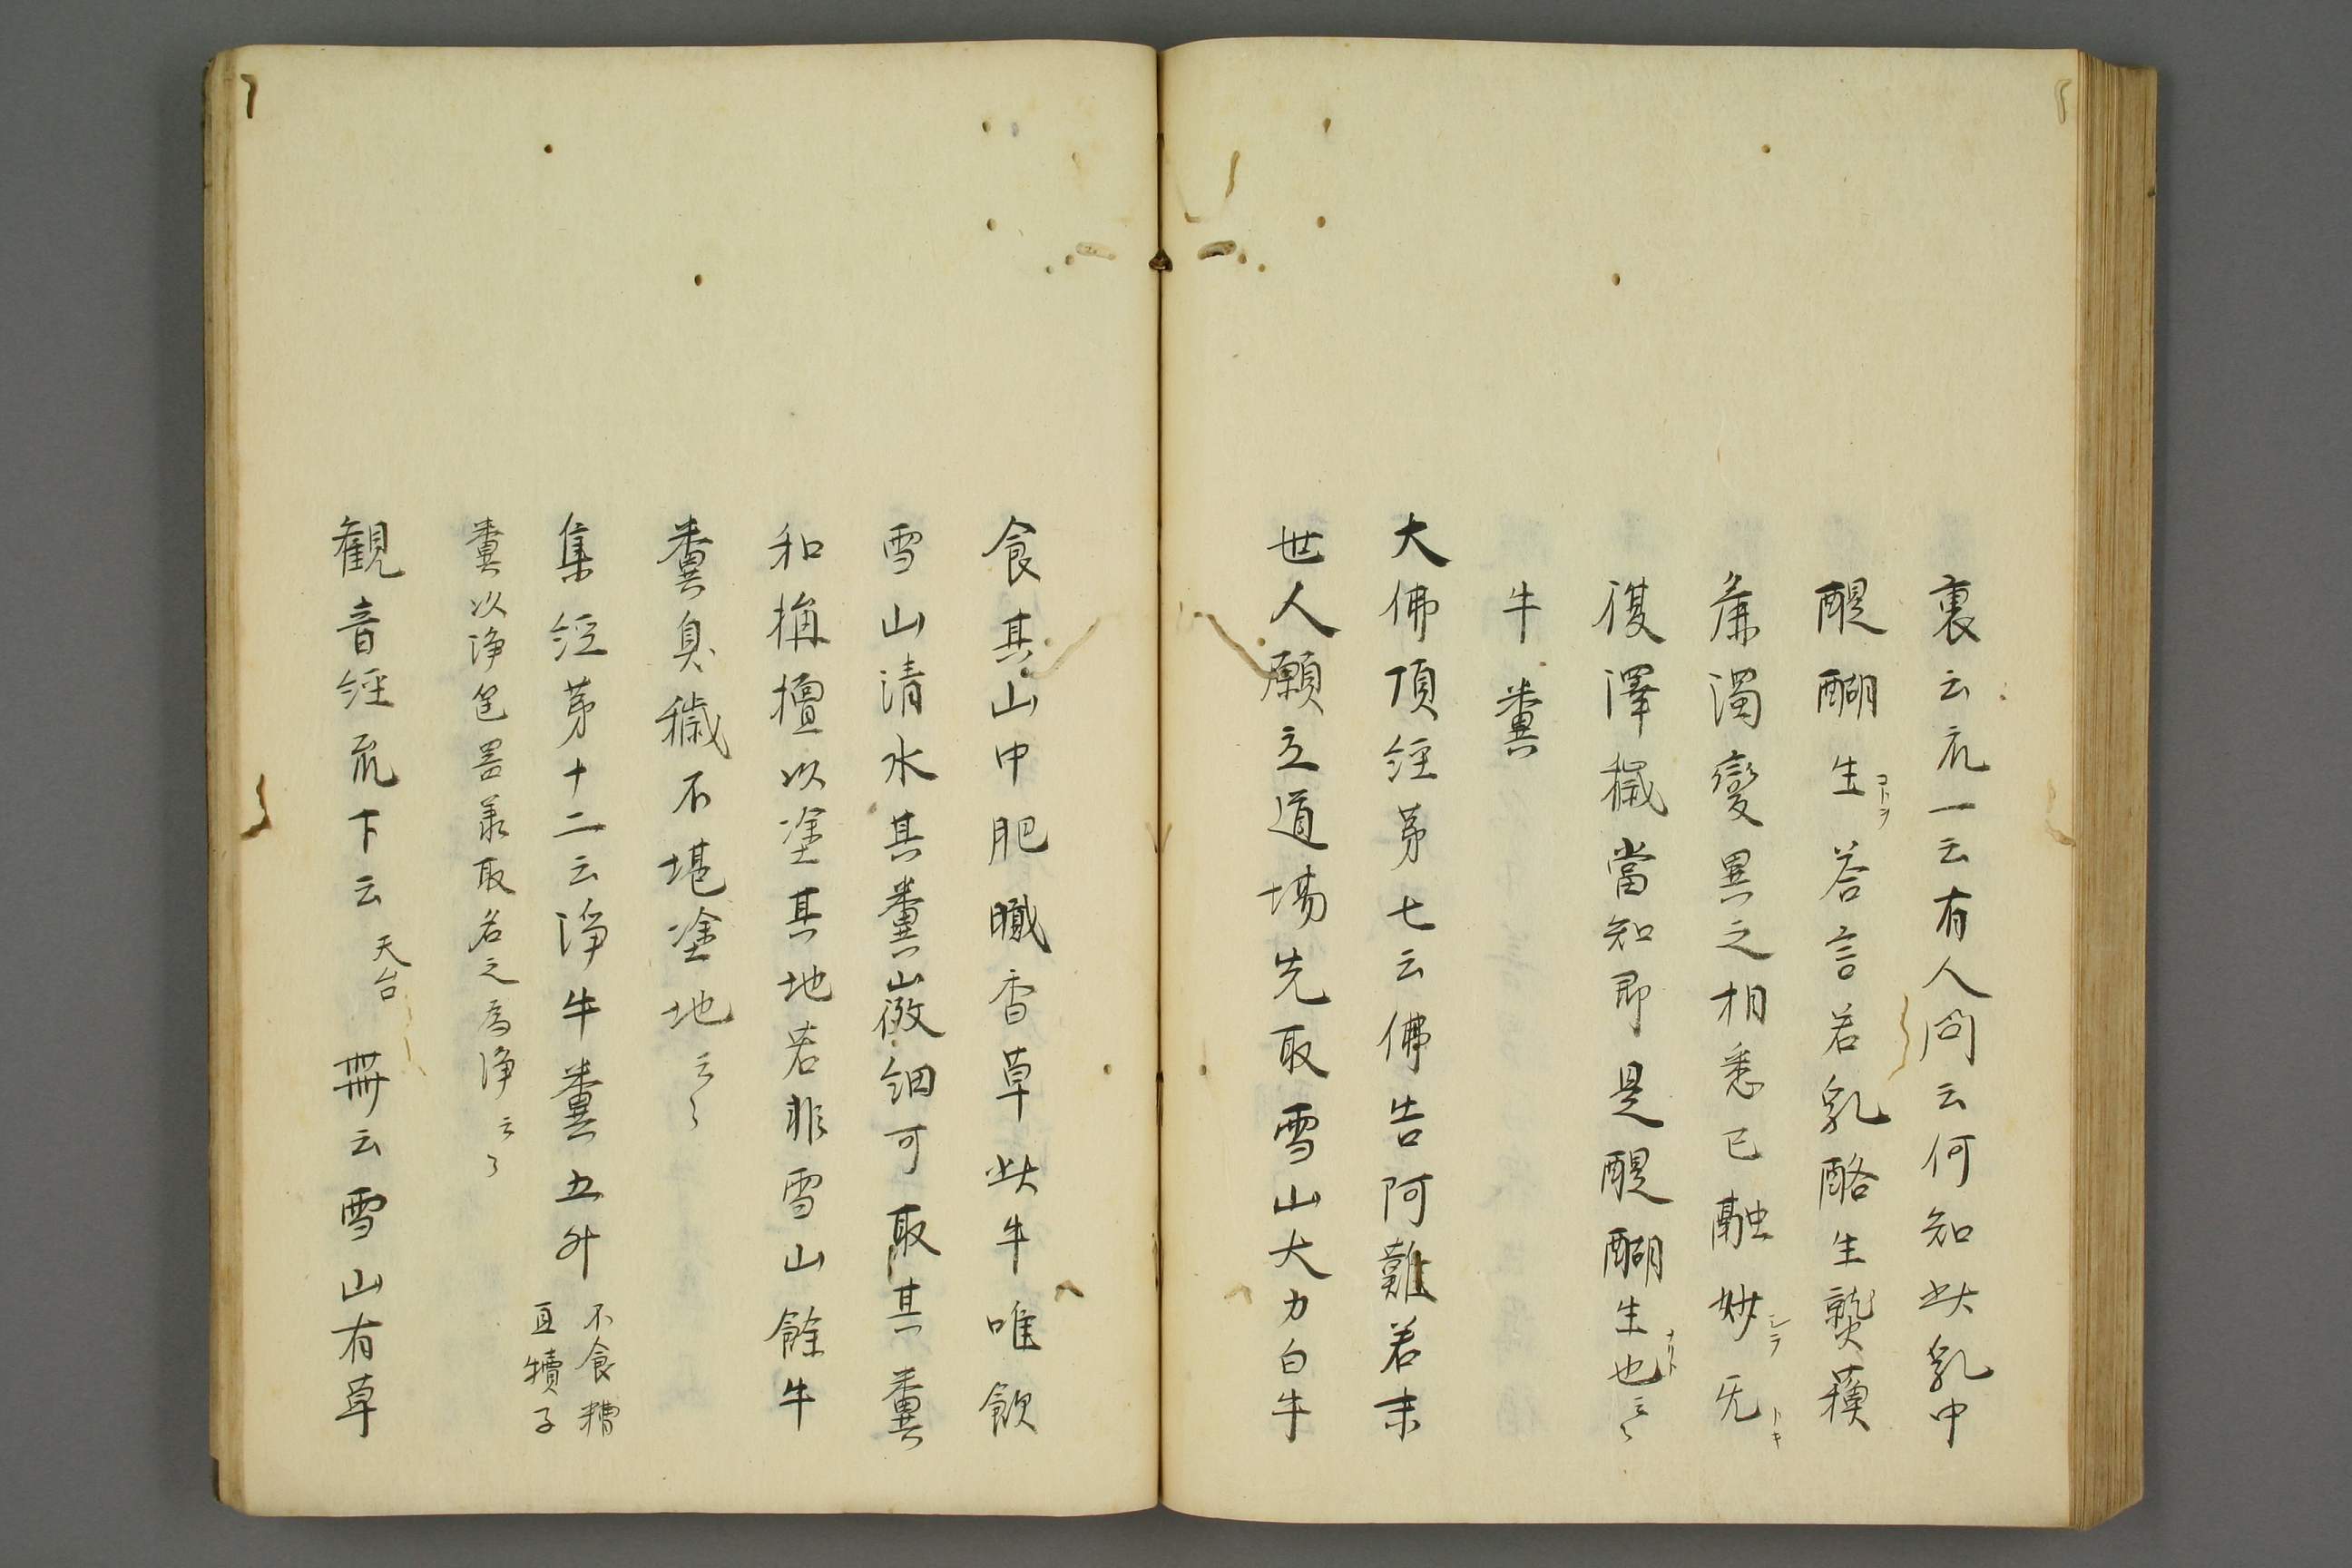 裏云疏一云有人問云何知此乳中
醍醐生コトヲ答言若乳酪生熟蘓
麁濁變異之相悉已融妙シテ无トキ
復滓穢當知即是醍醐生也ナリト云々
牛糞
大佛頂経苐七云佛告阿難若末
世人願立道場先取雪山大力白牛
食其山中肥膩香草此牛唯飲
雪山清水其糞微細可取其糞
和栴檀以塗其地若非雪山餘牛
糞臭穢不堪塗地云々
集経苐十二云浄牛糞五升不食糟
豆犢子
糞以浄器承取名之為浄云々
観音経疏下云天台 註云雪山有草